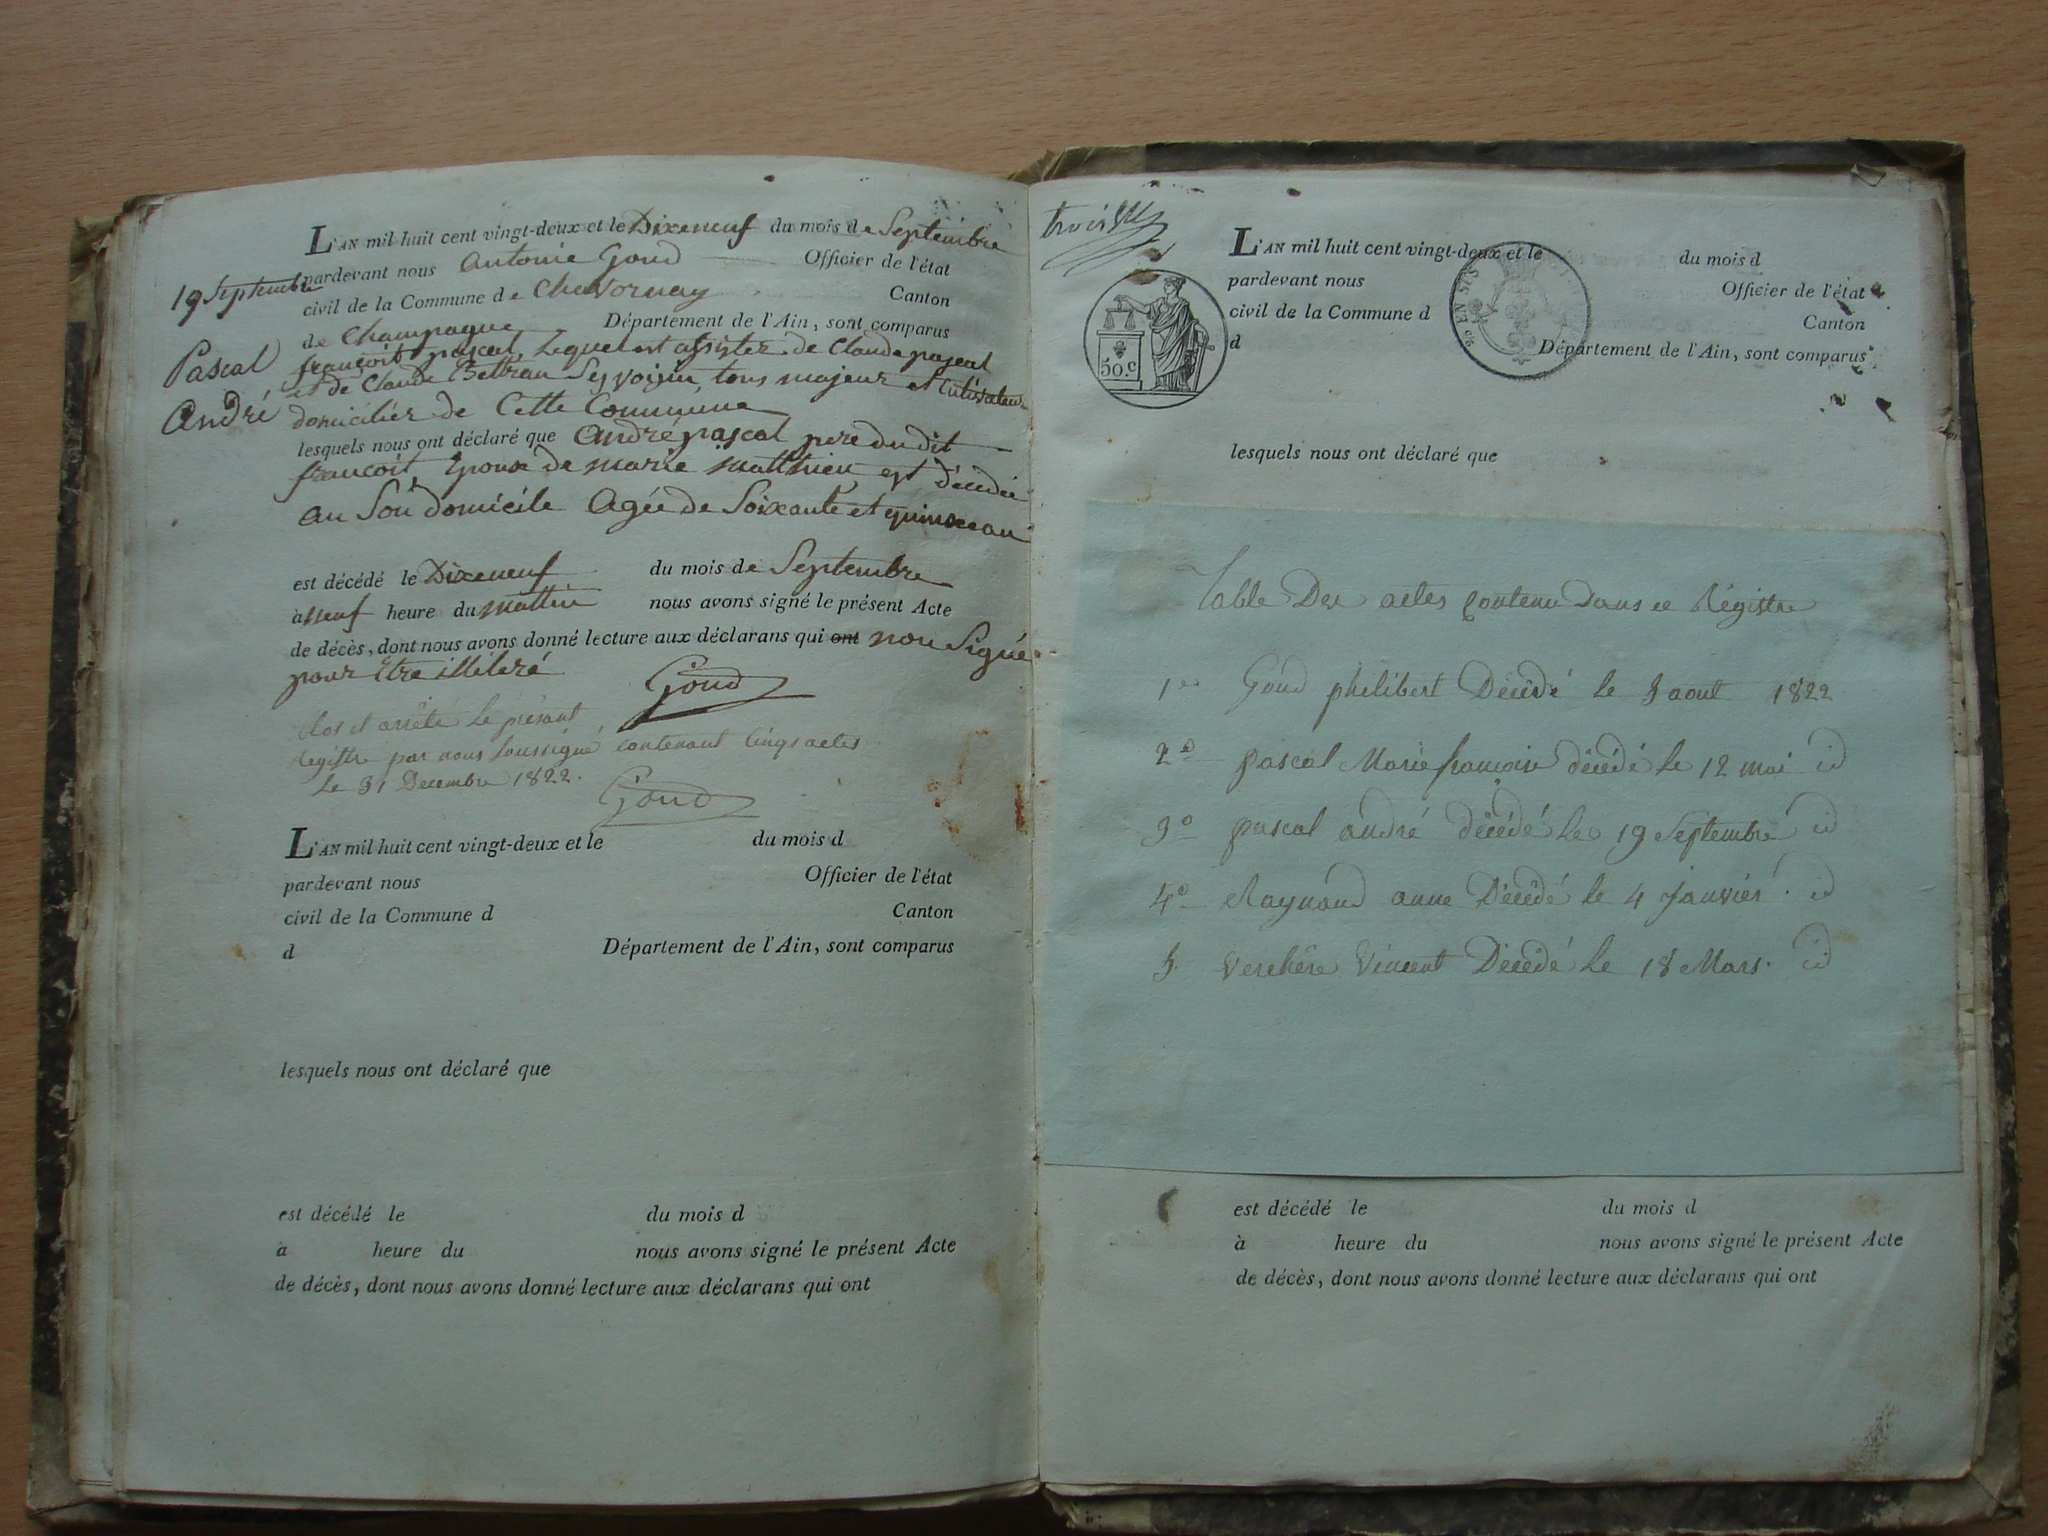 19 Septembre
Pascal
André
L'AN mil huit cent vingt-deux et le Dixeneuf du mois de Septembre
pardevant nous Antoine Goud Officier de l'état
civil de la Commune de Chavornay Canton
de Champagne Département de l'Ain, sont comparus
françoit pascal, lequel est assister de Claude pascal
et de Claude Beltran Ses voisin, tous majeur et Cultivateur
domicilier de Cette Commune
lesquels nous ont déclaré que André pascal pere du dit
francoit Epoux de marie matthieu est décédé
au Son domicile Agée de Soixante et quinse an
est décédé le Dixeneuf du mois de Septembre
à neuf heure du mattin nous avons signé le présent Acte
de décès, dont nous avons donné lecture aux déclarans qui ont non Signé
pour Etre illiteré Goud
Clos et arrêté le présent
Registre par nous soussigné, contenant Cinqs actes
le 31 Decembre 1822. Goud
L'AN mil huit cent vingt-deux et le du mois d
pardevant nous Officier de l'état
civil de la Commune d Canton
d Département de l'Ain, sont comparus
lesquels nous ont déclaré que
est décédé le du mois d
à heure du nous avons signé le présent Acte
de décès, dont nous avons donné lecture aux déclarans qui ont
trois
50.c
EN SUS
L'AN mil huit cent vingt-deux et le du mois d
pardevant nous Officier de l'état
civil de la Commune d Canton
d Département de l'Ain, sont comparus
lesquels nous ont déclaré que
Table Des actes Contenu Dans ce Régistre
1er Goud philibert Décédé le 3 aout 1822
2e pascal Marie françoise décédé le 12 mai id
3e pascal andré décédé le 19 Septembre id
4e Raynaud anne Décédé le 4 janvier. id
5. Verchère Vincent Décédé le 18 Mars. id
est décédé le du mois d
à heure du nous avons signé le présent Acte
de décès, dont nous avons donné lecture aux déclarans qui ont